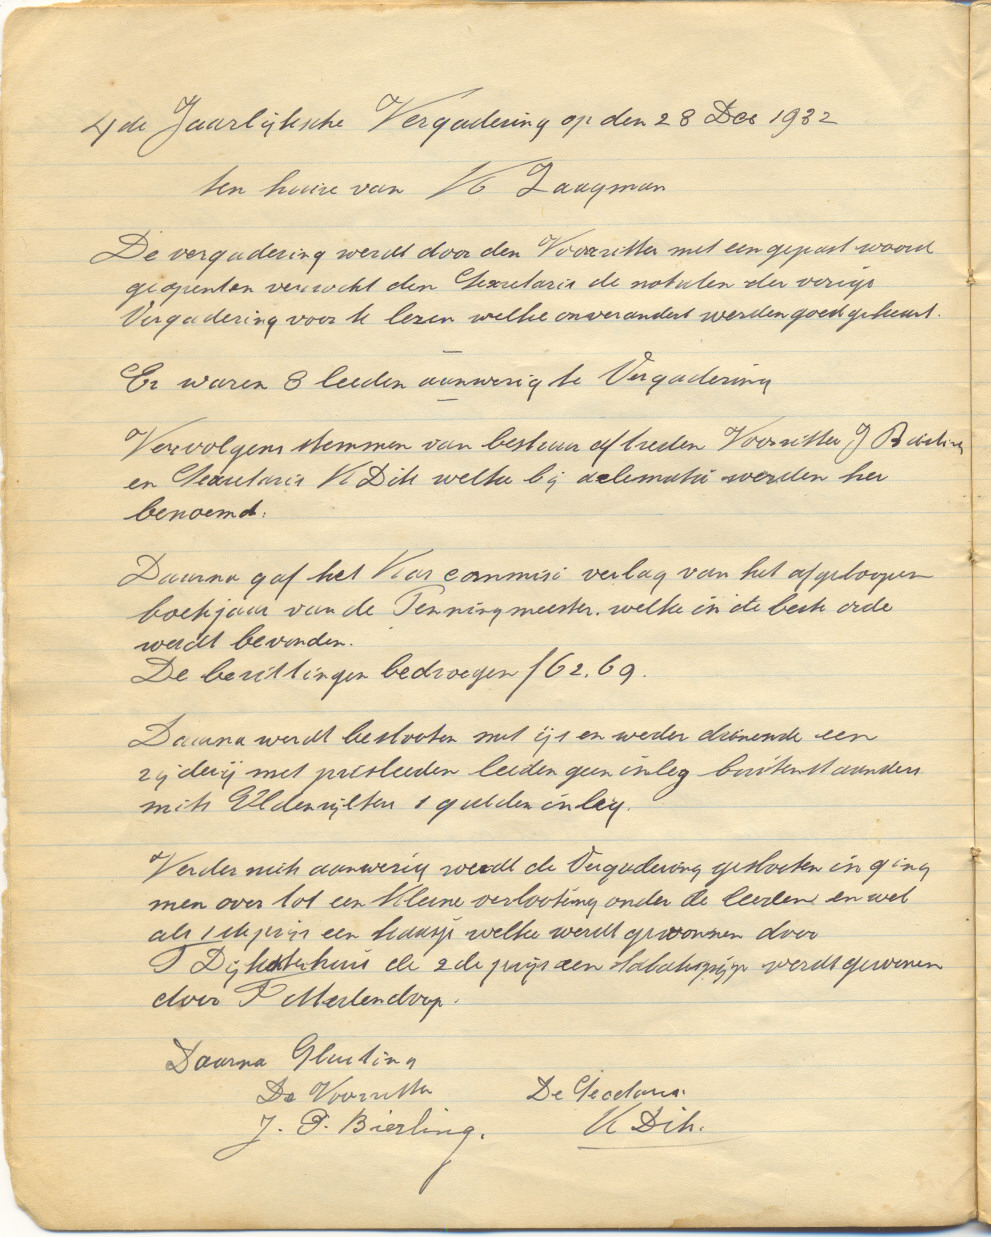 4de Jaarlijksche Vergadering op den 28 Dec 1932
ten huize van K Zaagman
De vergadering werdt door den Voorzitter met een gepast woord
geopent en verzocht den Secretaris de notulen der vorige
Vergadering voor te lezen welke onverandert werden goedgekeurt.
Er waren 8 leeden aanwezig te Vergadering
Vervolgens stemmen van bestuur aftreden Voorzitter J Bierling
en Secretaris K Dik welke bij aclematie werden her
benoemd.
Daarna gaf het Kas commisi verlag van het afgeloopen
boekjaar van de Penningmeester. welke in de beste orde
werdt bevonden.
De bezittingen bedroegen f 62.69.
Daarna werdt besloten met ijs en weder dienende een
rijderij met leeden geen inleg buitenstaanders
mits 1 gulden inleg.
Verder niets aanwezig werdt de Vergadering gesloten en ging
men over tot een kleine verlooting onder de leeden en wel
als 1ste prijs een kaasje welke werdt gewonnen door
P Dijksterhuis de 2de prijs een tabakspijp werdt gewonen
door P Meilendorp.
Daarna Sluiting
De Voorzitter De Secretaris
J. P. Bierling. K Dik.